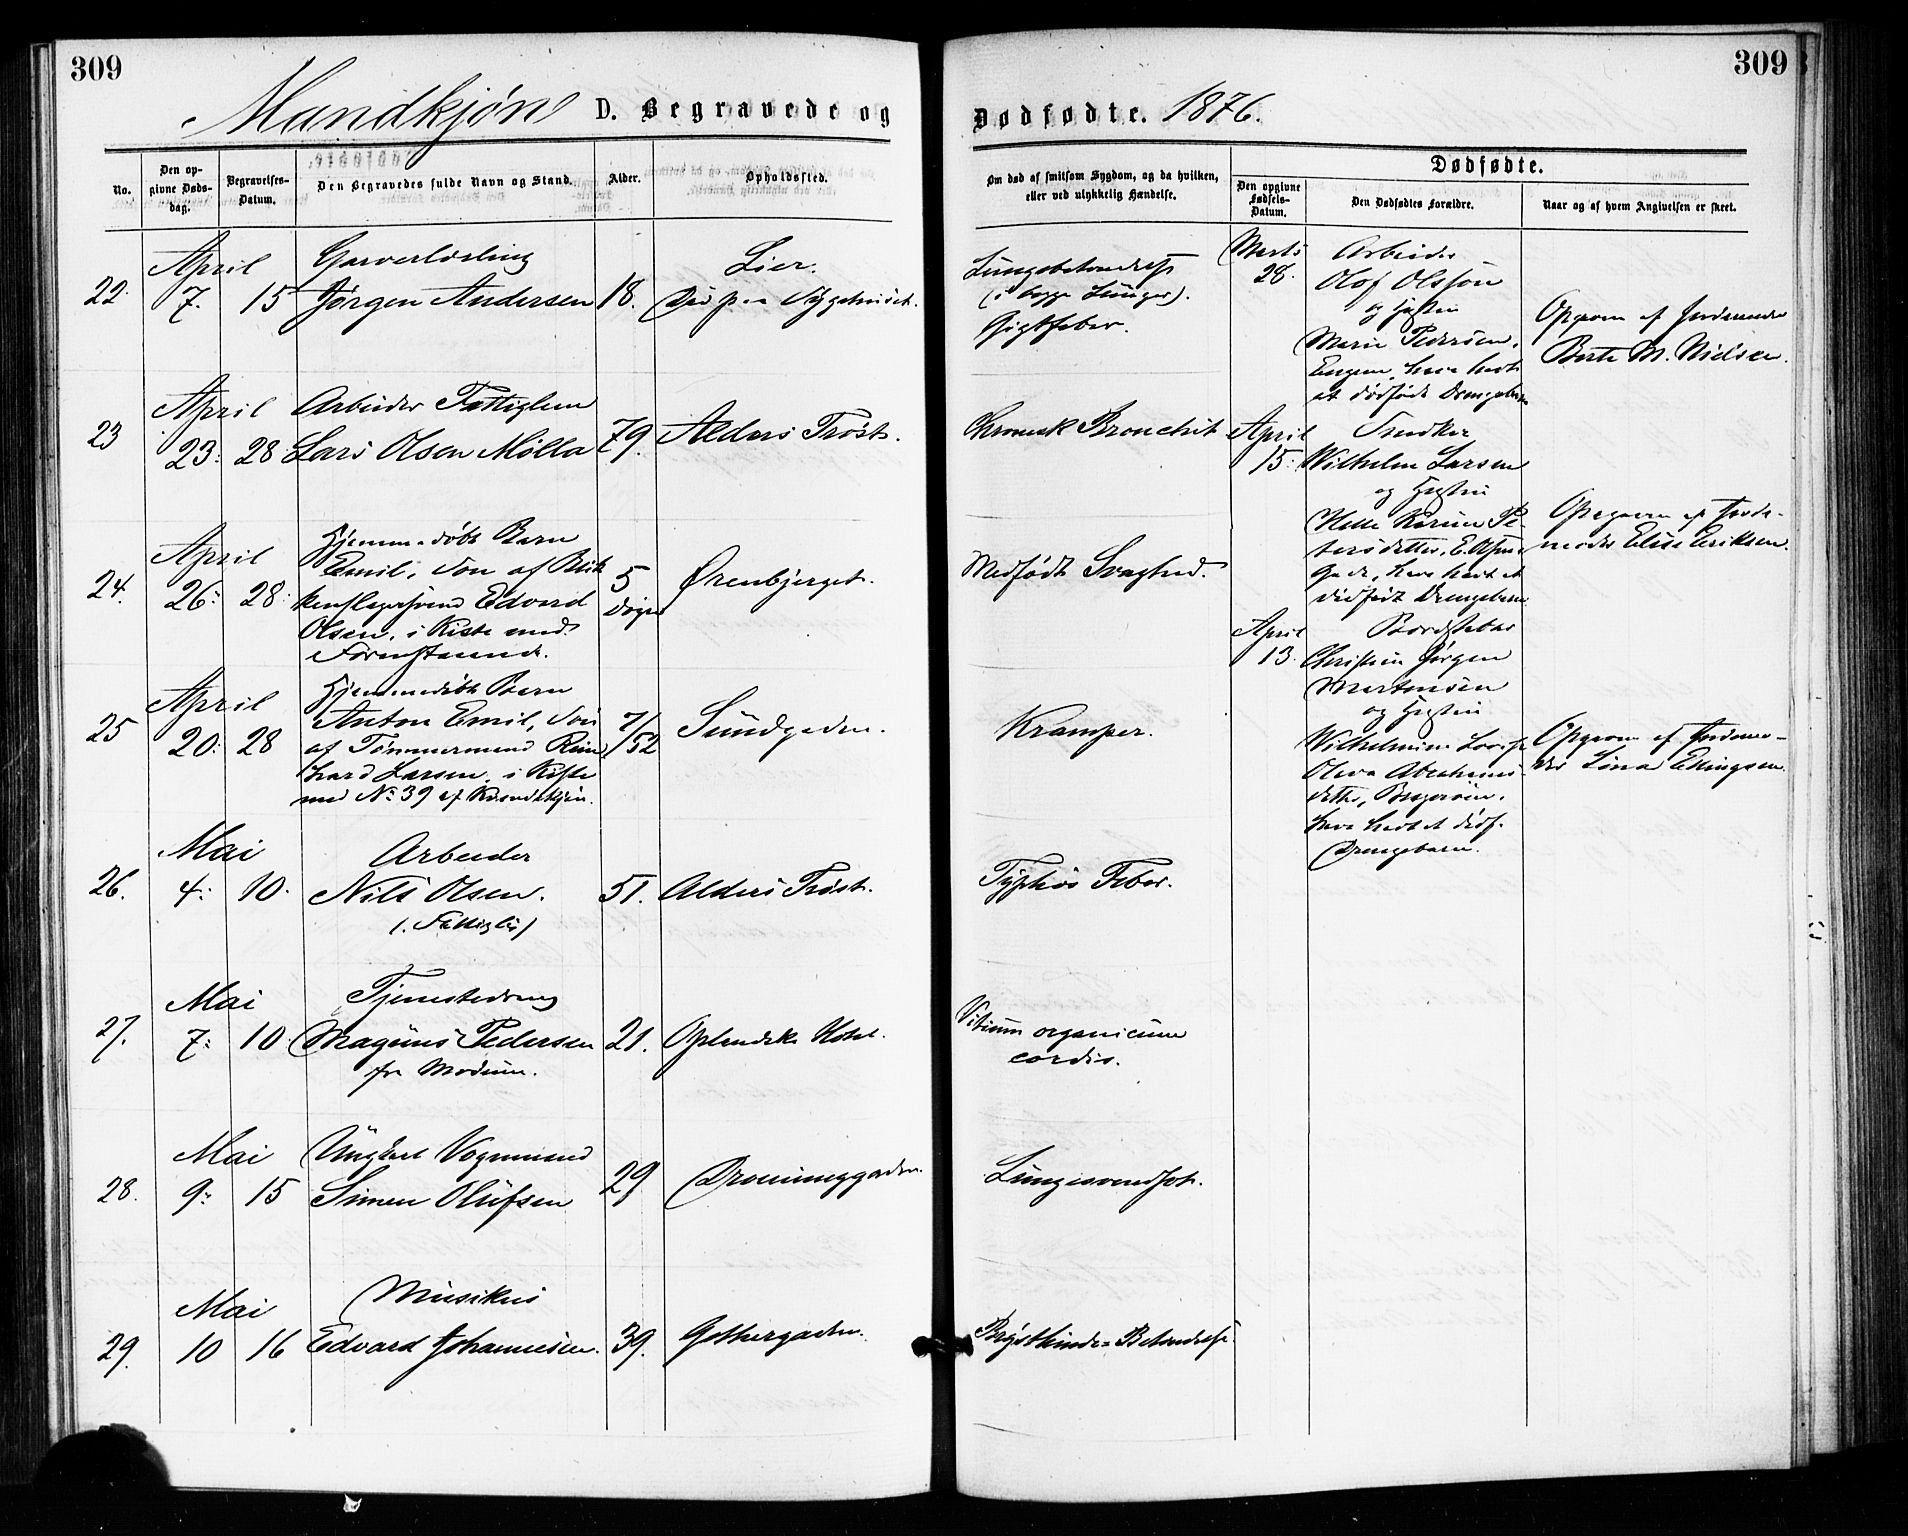 309
309
Mandkjøn D. Begravede og
Dødfødte. 1876.
No.
Den opgivne Dødsdag.
Begravelses-Datum.
Den Begravedes fulde Navn og Stand.
Alder.
Opholdssted.
Om død af smitsom Sygdom, og da hvilken, eller ved ulykkelig Hændelse.
Dødfødte.
Den opgivne Fødsels-Datum.
Den Dødfødtes Forældre.
Naar og af hvem Angivelsen er skeet.
22. April 7. 15
Garverlærling
Jørgen Andersen
18.
Lier.
Død paa Sygehuset.
Lungebetændelse
(i begge Lunger).
Gigtfeber.
23 April 23. 28.
Arbeider Fattiglem
Lars Olsen Mølla
79.
Alders Trøst.
Chronisk Bronchit
24. April 26. 28.
Hjemmedøbt Barn
Emil, Søn af Blik
kenslagersvend Edvard
Olsen, i Kiste med
5
Døgn
Ørenbjerget.
Medfødt Svaghed.
25 April 20. 28
Hjemmedøbt Barn
Anton Emil, Søn
af Tømmermand Rein
hard Larsen, i Kiste
med No 39 af Kvindekjøn.
7/52
Sundgaden.
Kramper.
26. Mai 4. 10.
Arbeider
Nils Olsen.
(Fattiglem)
51.
Alders Trøst.
Typhøs Feber.
27. Mai 7. 10
Tjenestedreng
Magnus Pedersen
fra Modum.
21.
Oplandske Hotel.
Vitium organicum
cordis.
28. Mai 9. 15
Ungkarl Vognmand
Simen Olufsen
29
Dronninggaden.
Lungesvindsot.
29. Mai 10 16
Musikus
Edvard Johannesen.
39.
Gothergaden.
Brysthinde-Betændelse.
Marts
28.
Arbeider
Olof Olsson
og Hustru
Marie Pedersen,
Engene, have havt
et dødfødt Drengebarn
Opgiven af Jordemoder
Berte M. Nielsen.
April
15.
Snedker
Wilhelm Larsen
og Hustru
Helle Karine Pe-
tersdatter,
Gade, have havt et
dødfødt Drengebarn
Opgiven af Jorde-
moder Elise Eriksen.
April
13.
Bødker
Christian Jørgen
Mortensen
og Hustru
Wilhelmine Lovise
Oleva Abrahams-
datter, Bragerøen,
have havt et dødf.
Drengebarn.
Opgiven af Jordemo-
der Lina Ellingsen.